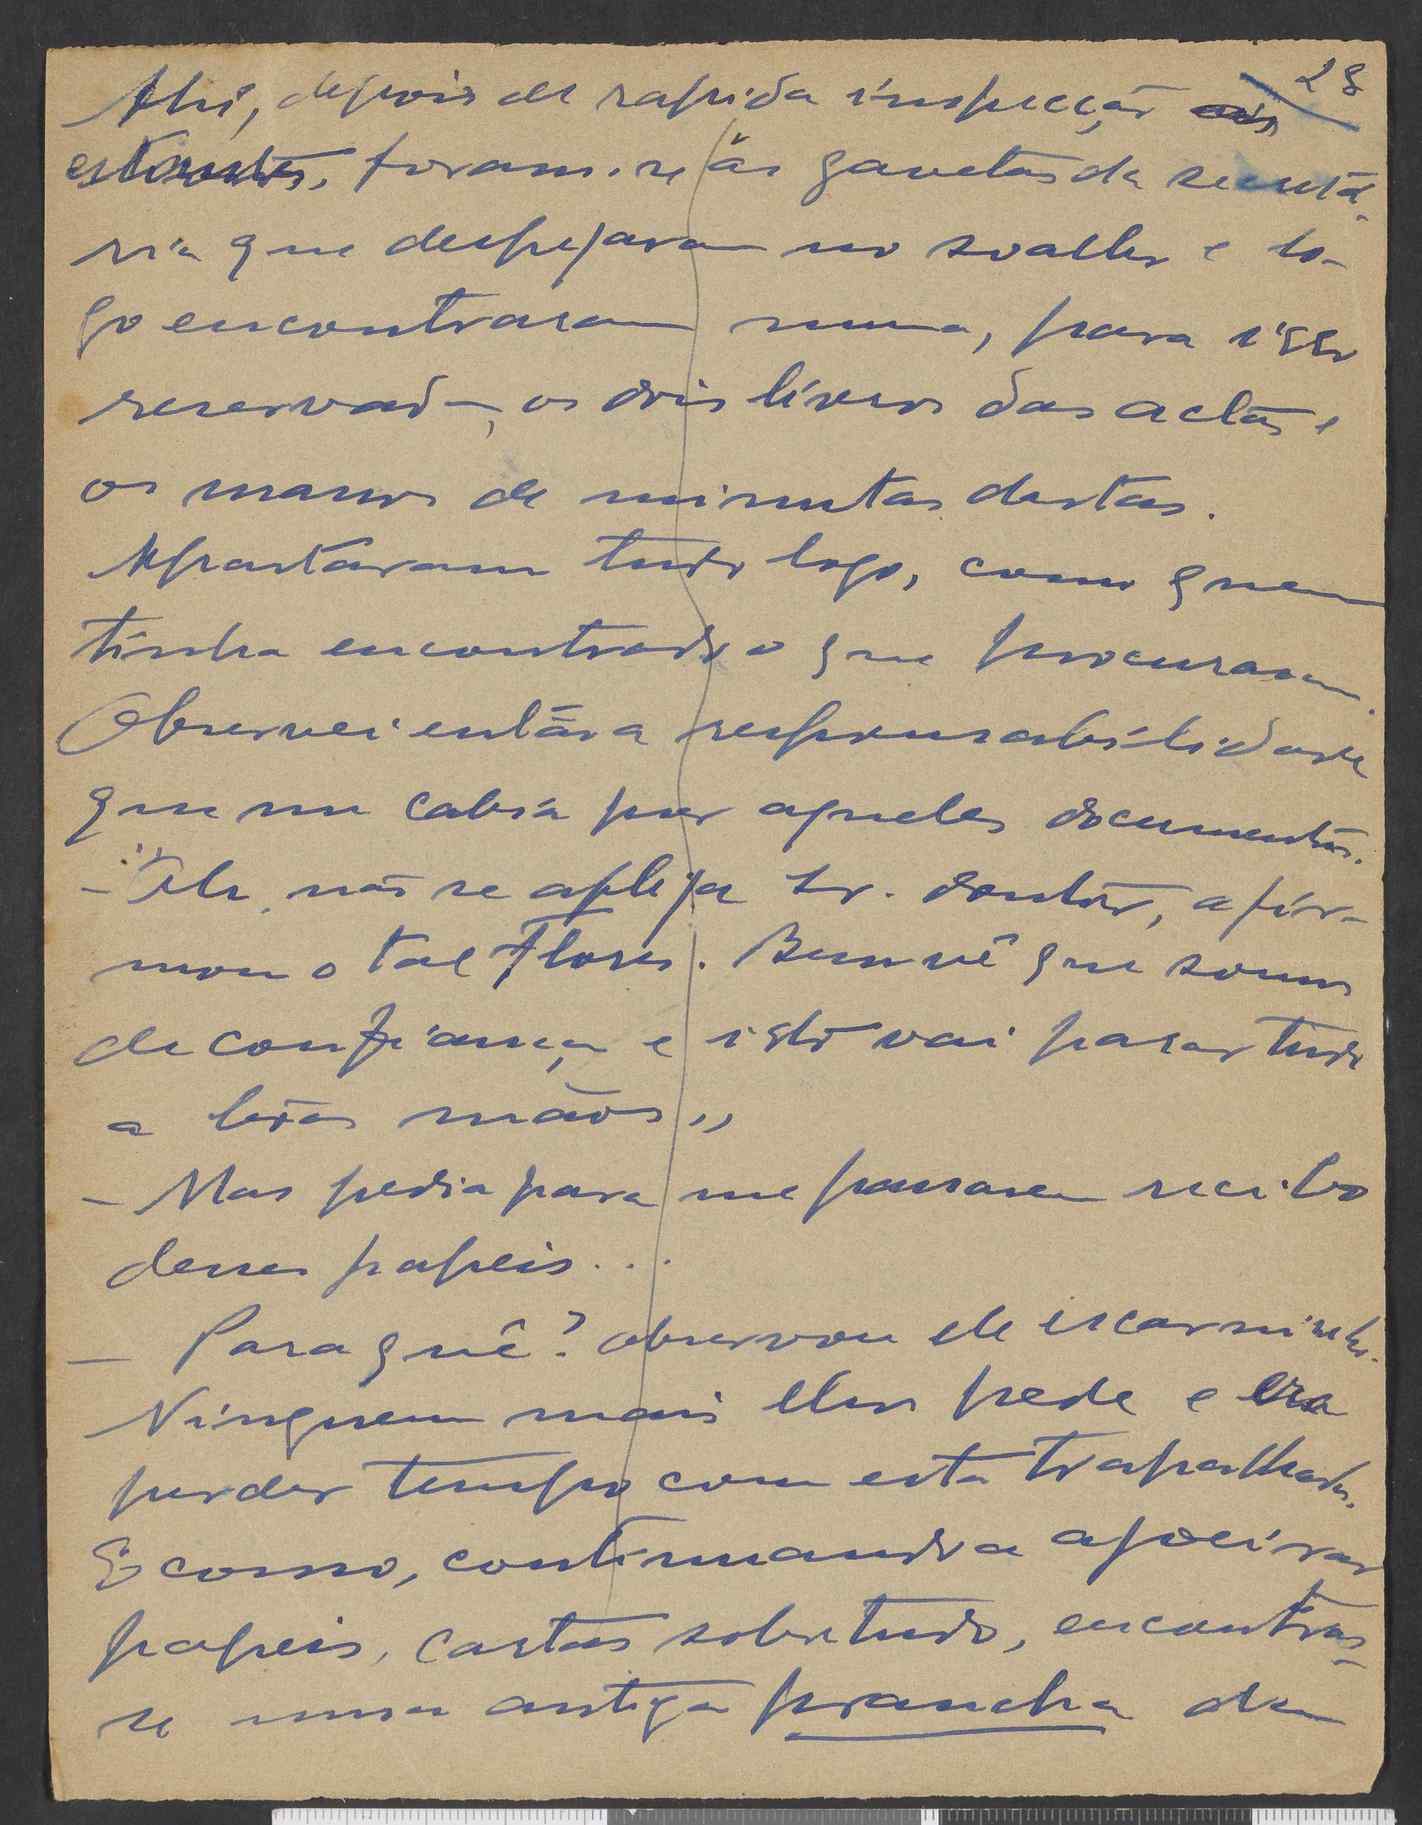 28
Ahi, depois de rapida inspecção aos
estantes, foram-se ás gavetas da secretá-
ria que despejaram no soalho e lo-
go encontraram numa, para isso
reservada, os dois livros das actas e
os massos de minutas destas.
Apartaram tudo logo, como quem
tinha encontrado o que procuravam.
Observei então a responsabilidade
que me cabia por aqueles documentos.
- "Oh, não se aflija Sr. doutor, afir-
mou o tal Flores. Bem vê que somos
de confiança e isto vai parar tudo
a boas mãos"
- Mas pedia para me passarem recibo
desses papeis...
- Para quê? observou ele escarninho.
Ninguem mais lhos pede e era
perder tempo com esta trapalhada.
E como, continuando a apoeirar
papeis, cartas sobretudo, encontras-
se uma antiga prancha da